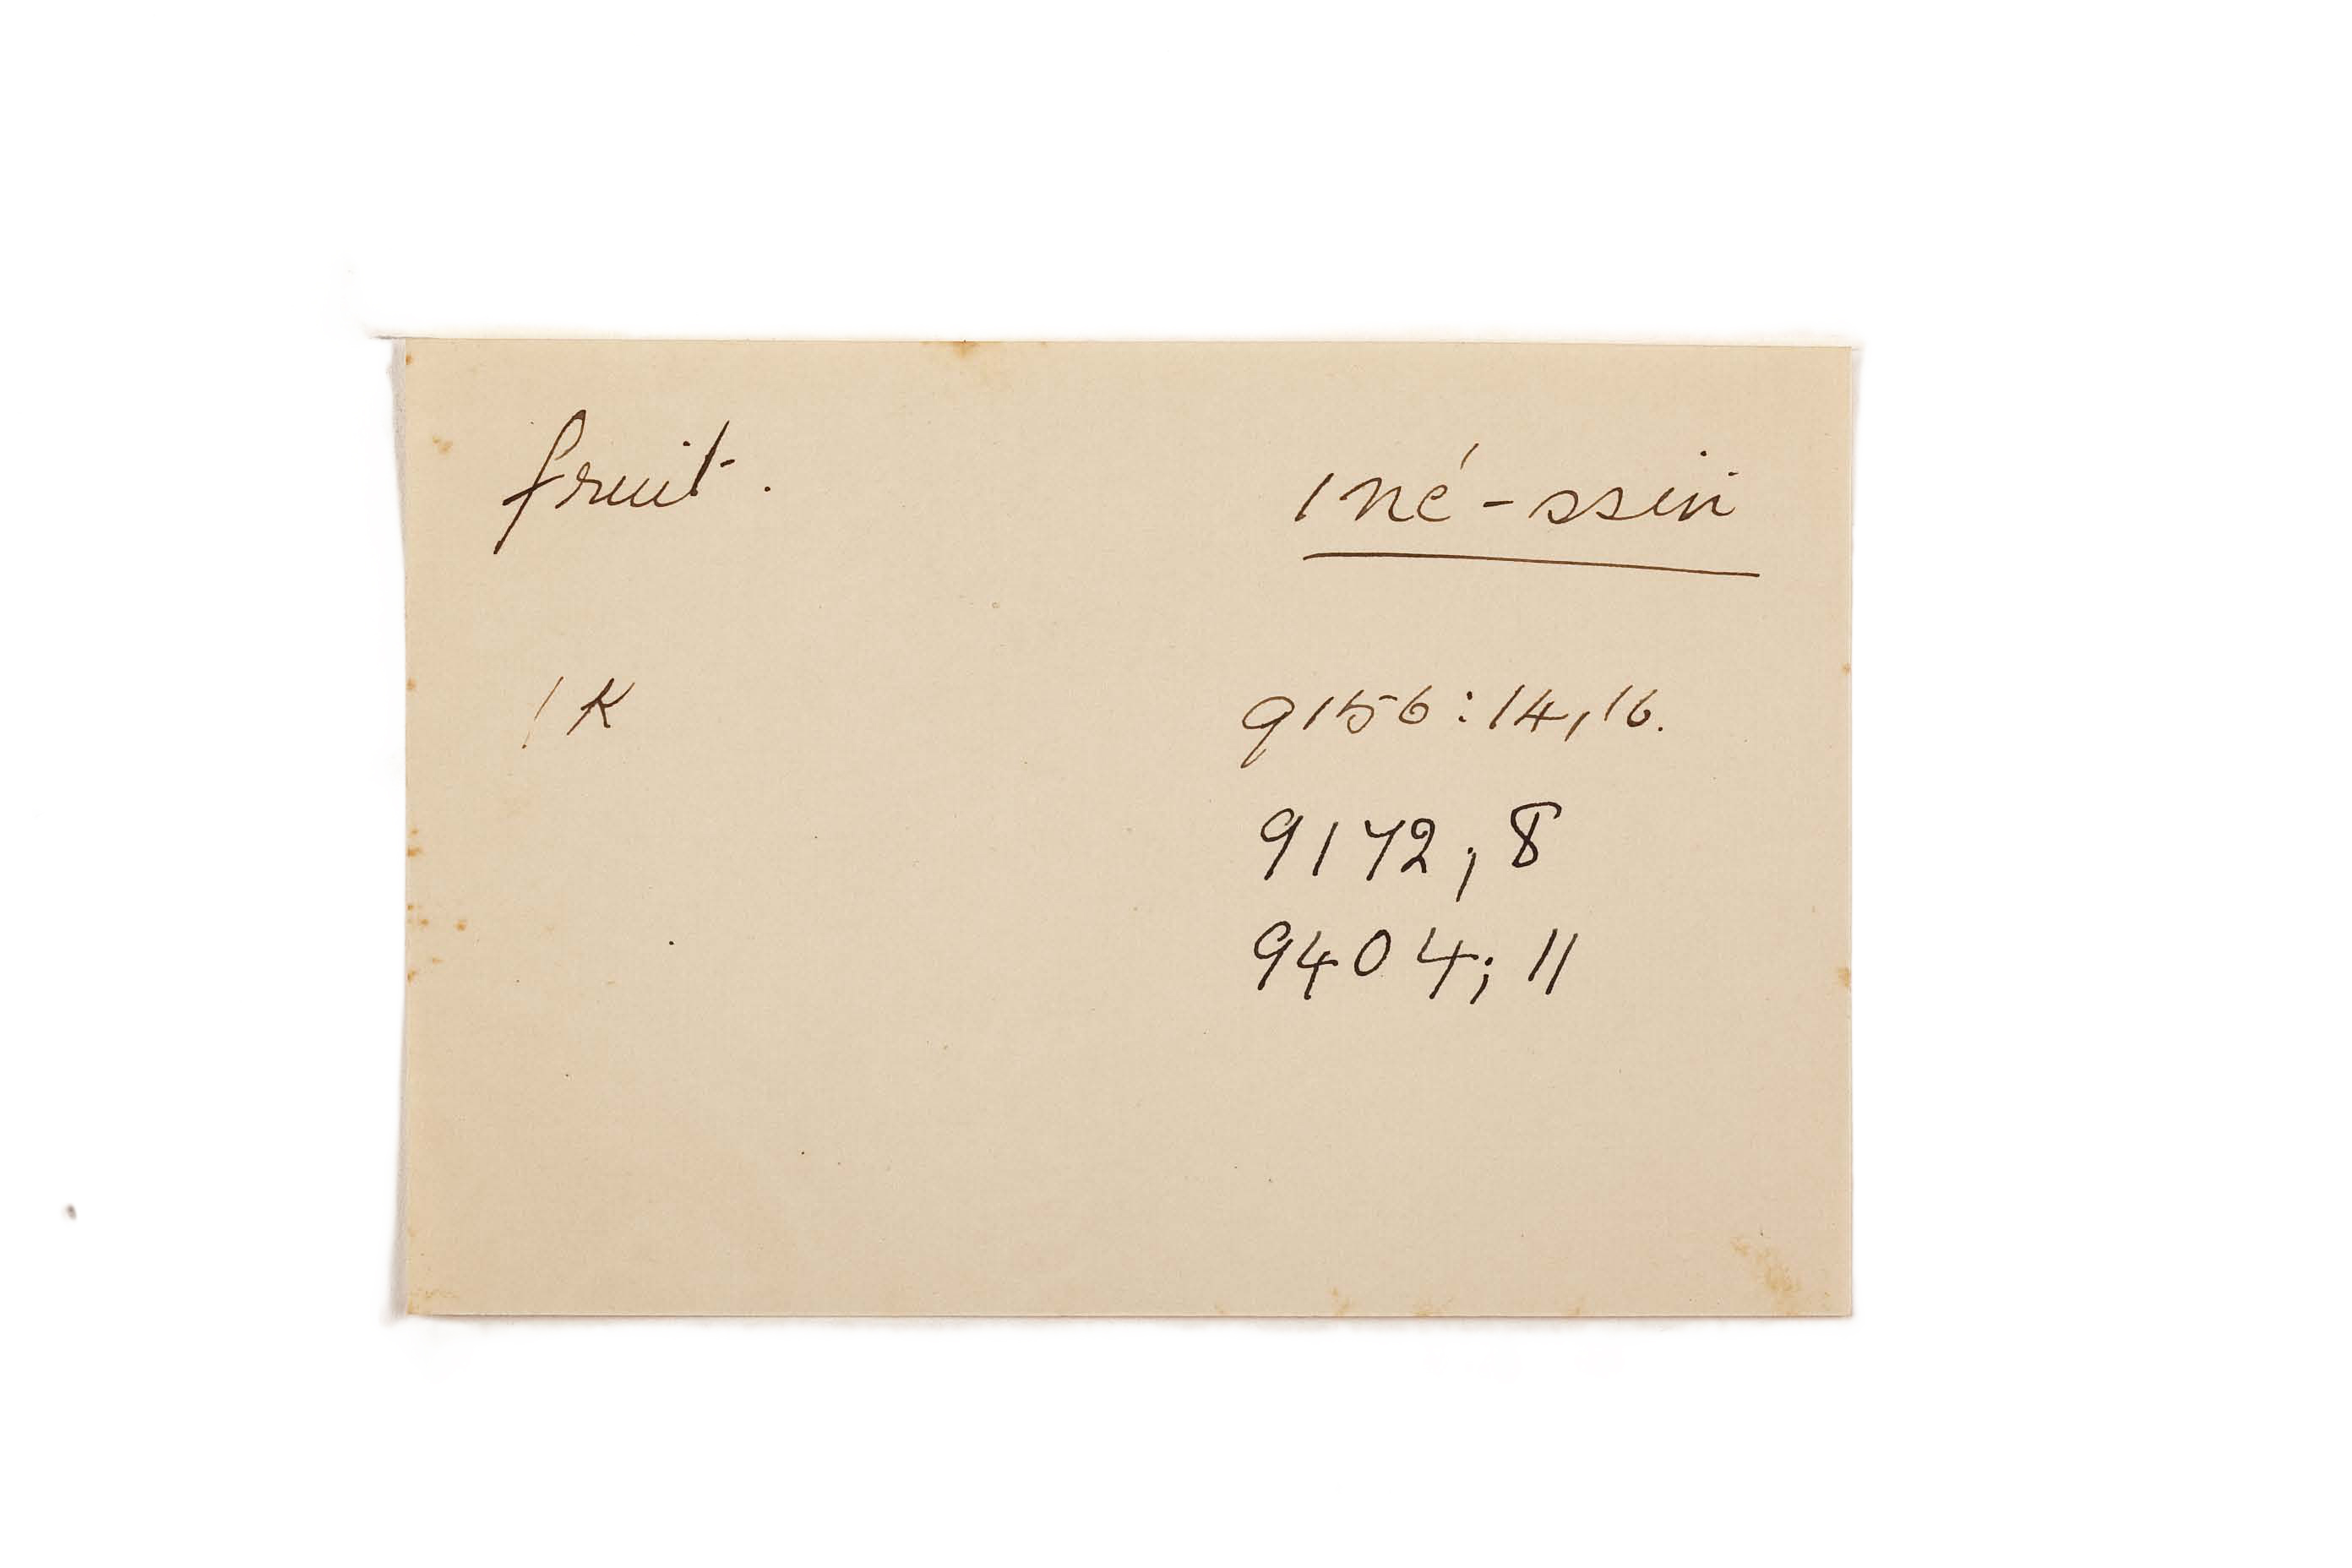 fruit. ıné-ssin
/K 9156:14,16.
9172; 8
9404; 11